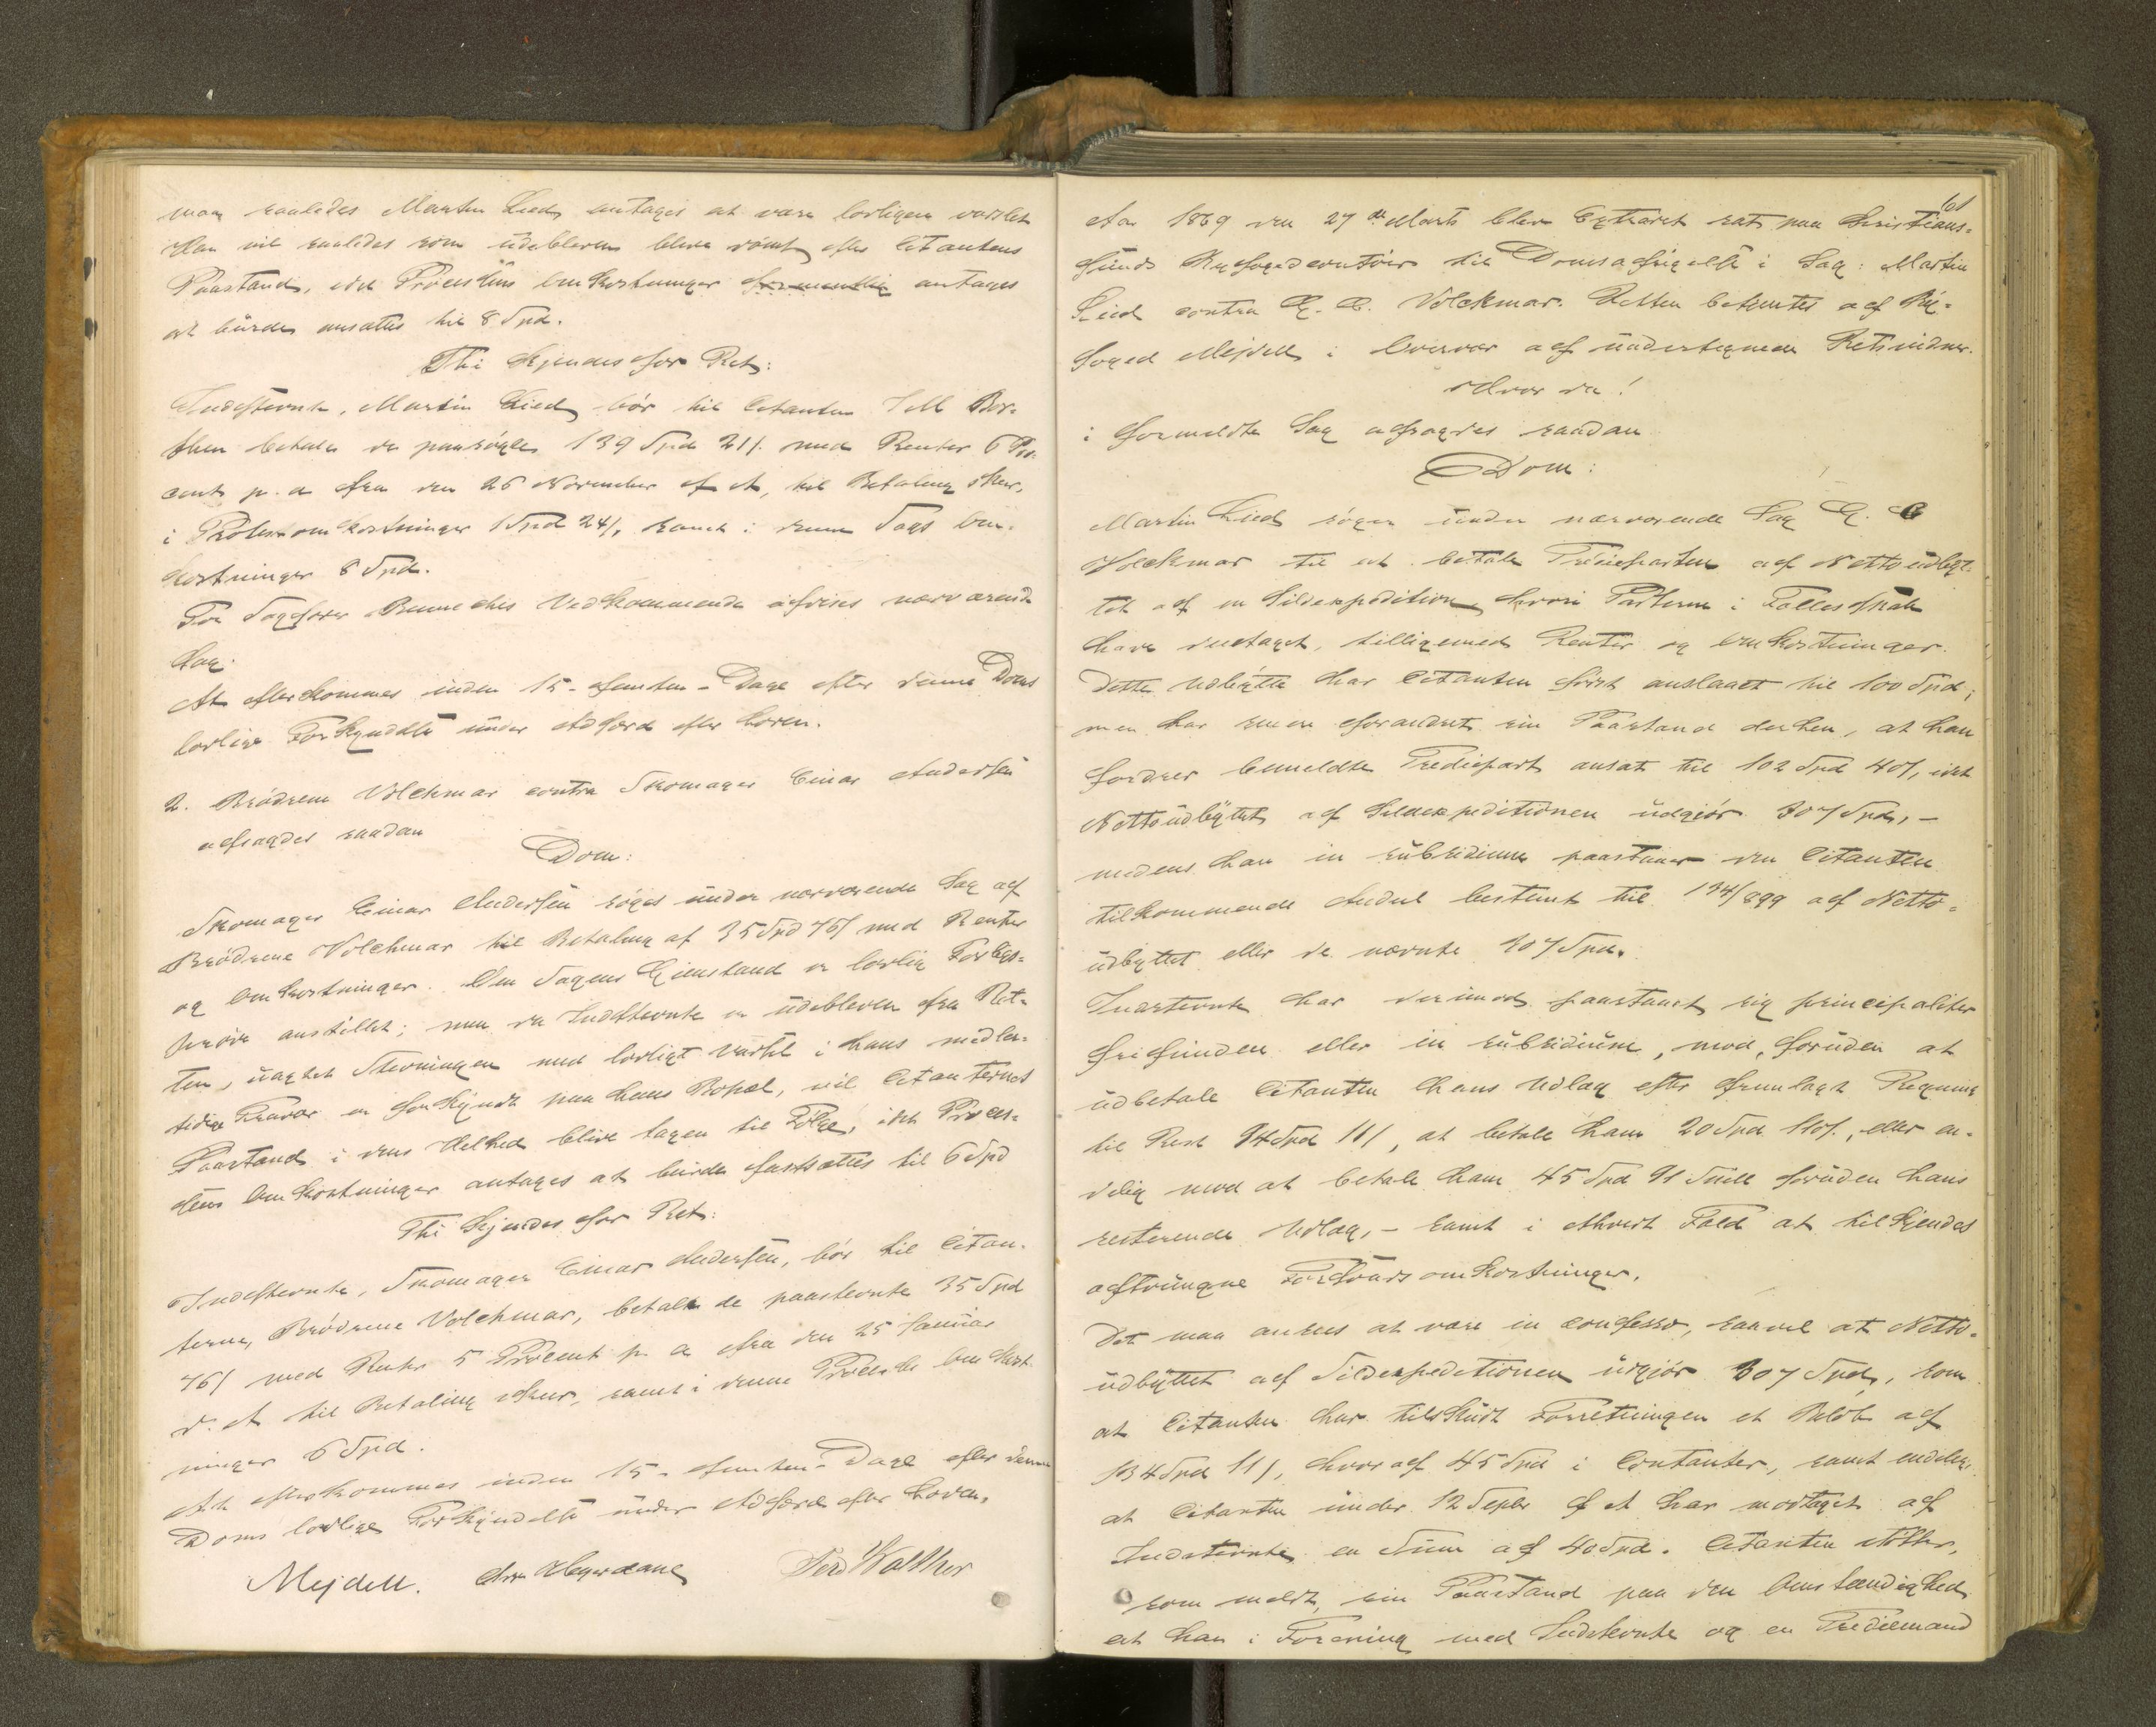 maa saaledes Martin Lied antages at være lovligen varslet
Han vil saaledes som udebleven blive dømt efter Citantens
Paastand, idet Processens Omkostninger antages
at burde ansættes til 8 Spd.
Thi kjendes for Ret:
Indstevnte, Martin Lied bør til Citanten I M Bor-
then betale de paasøgte 139 Spd 21 s. med Renter 6 Pro-
cent p. a fra den 26 November f A, til Betaling sker,
i Protestomkostninger 1 Spd 24 s, samt i denne Sags Om-
kostninger 8 Spd.
For Sagfører Vedkommende afvises nærværende
Sag.
At efterkommes inden 15 - femten - Dage efter denne Doms
lovlige Forkyndelse under Adfærd efter Loven.
2. Brødrene Volckmar contra Skomager Einar Andersen
afsagdes saadan
Dom:
Skomager Einar Andersen søges under nærværende Sag af
Brødrene Volckmar til Betaling af 35 Spd 76 s med Renter
og Omkostninger. Om Sagens Gjenstand er lovlig Forligs-
prøve anstillet; men da Indstevnte er udebleven fra Ret-
ten, uagtet Stevningen med lovligt Varsel i hans midler-
tidige Fravær er forkyndt paa hans Bopæl, vil Citanternes
Paastand i dens Helhed blive tagen til Følge, idet Proces-
sens Omkostninger antages at burde fastsættes til 6 Spd
Thi kjendes for Ret:
Indstevnte, Skomager Einar Andersen, bør til Citan-
terne, Brødrene Volckmar, betale de paastevnte 35 Spd
76 s med Renter 5 Procent p. a fra den 25 Januar
d. A til Betaling sker, samt i denne Processes Omkost-
ninger 6 Spd.
At efterkommes inden 15 - femten - Dage efter denne
Doms lovlige Forkyndelse under Adfærd efter Loven.
Mejdell. Ferd Walther
61
Aar 1869 den 27de Marts blev Extraret sat paa Christians-
sunds Byfogedcontoir til Domsafsigelse i Sag: Martin
Lied contra G. C. Volckmar. Retten betjentes af By-
foged Mejdell i Overvær af undertegnede Retsvidner.
Hvor da!
i formeldte Sag afsagdes saadan
Dom:
Martin Lied søger under nærværende Sag G. C
Volckmar til at betale Tredieparten af Nettoudbyt-
tet af en Sildexpedition hvori Parterne i Fællesskab
have deltaget, tilligemed Renter og Omkostninger.
Dette Udbytte har Citanten først anslaaet til 100 Spd;
men har senere forandret sin Paastand derhen, at han
fordrer bemeldte Trediepart ansat til 102 Spd 40 s, idet
Nettoudbyttet af Sildexpeditionen udgjør 307 Spd, -
medens han in subsidium paastaar den Citanten
tilkommende Andel bestemt til 134/899 af Netto-
udbyttet eller de nævnte 307 Spd.
Indstevnte har derimod paastaaet sig principaliter
frifunden eller in subsidium, mod, foruden at
udbetale Citanten hans Udlæg efter fremlagt Regning
til Rest 94 Spd 11 s, at betale ham 20 Spd 110 s., eller en-
delig mod at betale ham 45 Spd 91 Skill foruden hans
resterende Udlæg, - samt i ethvert Fald at tilkjendes
aftvungne Forsvarsomkostninger.
Det maa ansees at være in confesso, saavel at Netto-
udbyttet af Sildexpeditionen udgjør 307 Spd, som
at Citanten har tilskudt Forretningen et Beløb af
134 Spd 11 s, hvoraf 45 Spd i Contanter, samt endelig,
at Citanten under 12 Septbr f A har modtaget af
Indstevnte en Sum af 40 Spd. Citanten støtter,
som meldt, sin Paastand paa den Omstændighed
at han i Forening med Indstevnte og en Trediemand